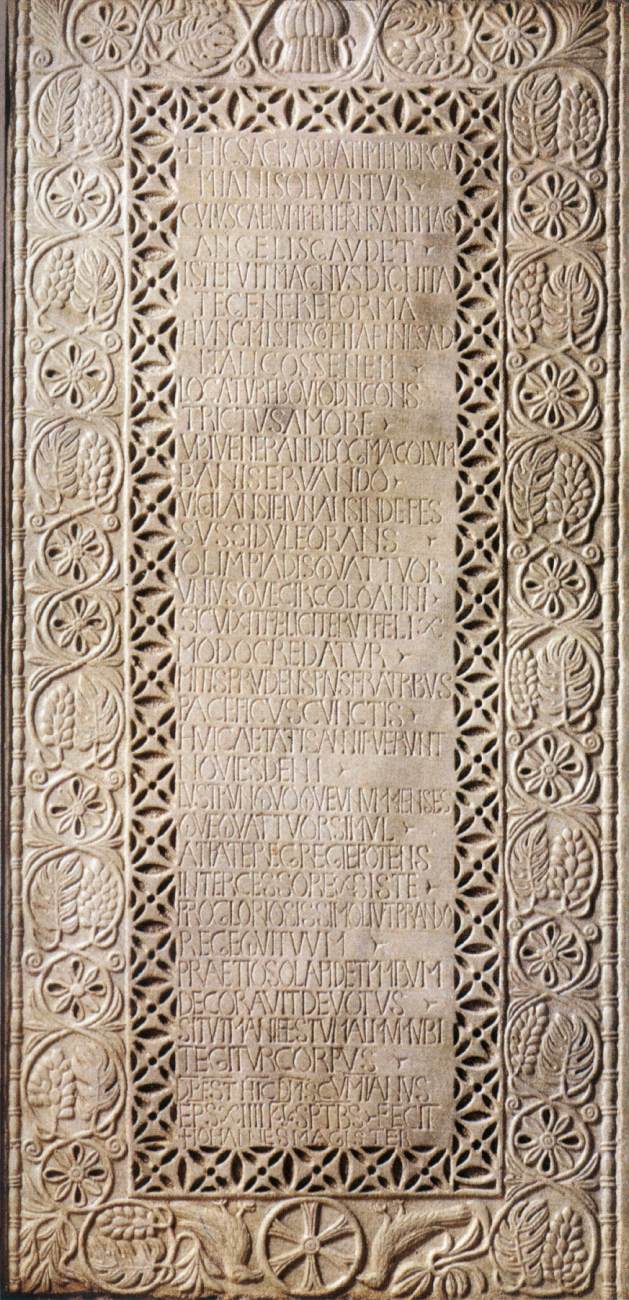 + HIC SACRA BEATI MEMBR CV
MIANI SOLVVNTVR
CVIVS CAELVM PENETRNS ANIMA
ANGELIS GAVDET
ISTE FVIT MAGNVS DIGNITA
TE GENERE FORMA
HVNC MISIT FINIS AD
ITALICOS SENEM
LOCATVR EBOVIO DNI CONS
TRICTVS AMORE
VBI VENERANDI DOGMA COLVM
BANI SERVANDO
VIGILANS IEIVNANS INDEFES
SVS SIDVLE ORANS
OLIMPIADIS QVATTVOR
VNIVSQVE CIRCOLO ANNI
SIC VIXIT FELICITER VT FELIX
MODO CREDATVR
MITIS PRVDENS PIVS FRATRIBVS
PACIFICVS CVNCTIS
HVIC AETATIS ANNI FVERVNT
NOVIES DENI
LVSTRVM QVOQVE VNVM MENSES
QVE QVATTVOR SIMVL
AT PATER EGREGIE POTENS
INTERCESSOR EXSISTE
PRO GLORIOSISSIMO LIVTPRANDO
REGE QVI TVVM
PRAETIOSO LAPIDE TIMBVM
DECORAVIT DEVOTVS
SIT VT MANIFESTVM ALMVM VBI
TEGITVR CORPVS
DP EST HIC DMS CVMIANVS
EPS XIIII FECIT
IOHANNES MAGISTER